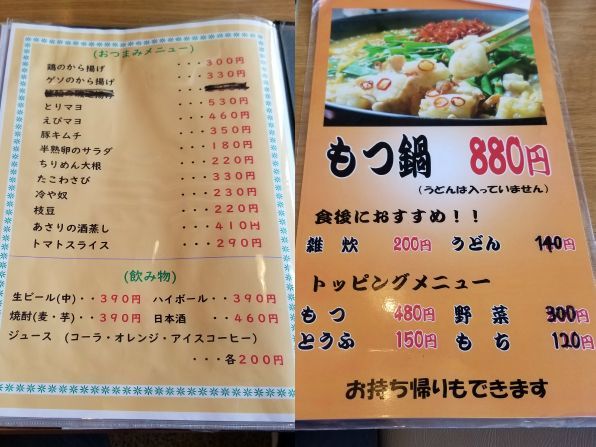 (おつまみメニュー)
鶏のから揚げ ・・・300円
ゲソのから揚げ ・・・330円
とりマヨ ・・・530円
えびマヨ ・・・460円
豚キムチ ・・・350円
半熟卵のサラダ ・・・180円
ちりめん大根 ・・・220円
たこわさび ・・・330円
冷や奴 ・・・230円
枝豆 ・・・220円
あさりの酒蒸し ・・・410円
トマトスライス ・・・290円
(飲み物)
生ビール(中)・・390円 ハイボール・・390円
焼酎(麦・芋)・・390円 日本酒 ・・460円
ジュース (コーラ・オレンジ・アイスコーヒー)
・・・各200円
もつ鍋 880円
(うどんは入っていません)
食後におすすめ!!
雑炊 200円 うどん 140円
トッピングメニュー
もつ 480円 野菜 300円
とうふ 150円 もち 120円
お持ち帰りもできます